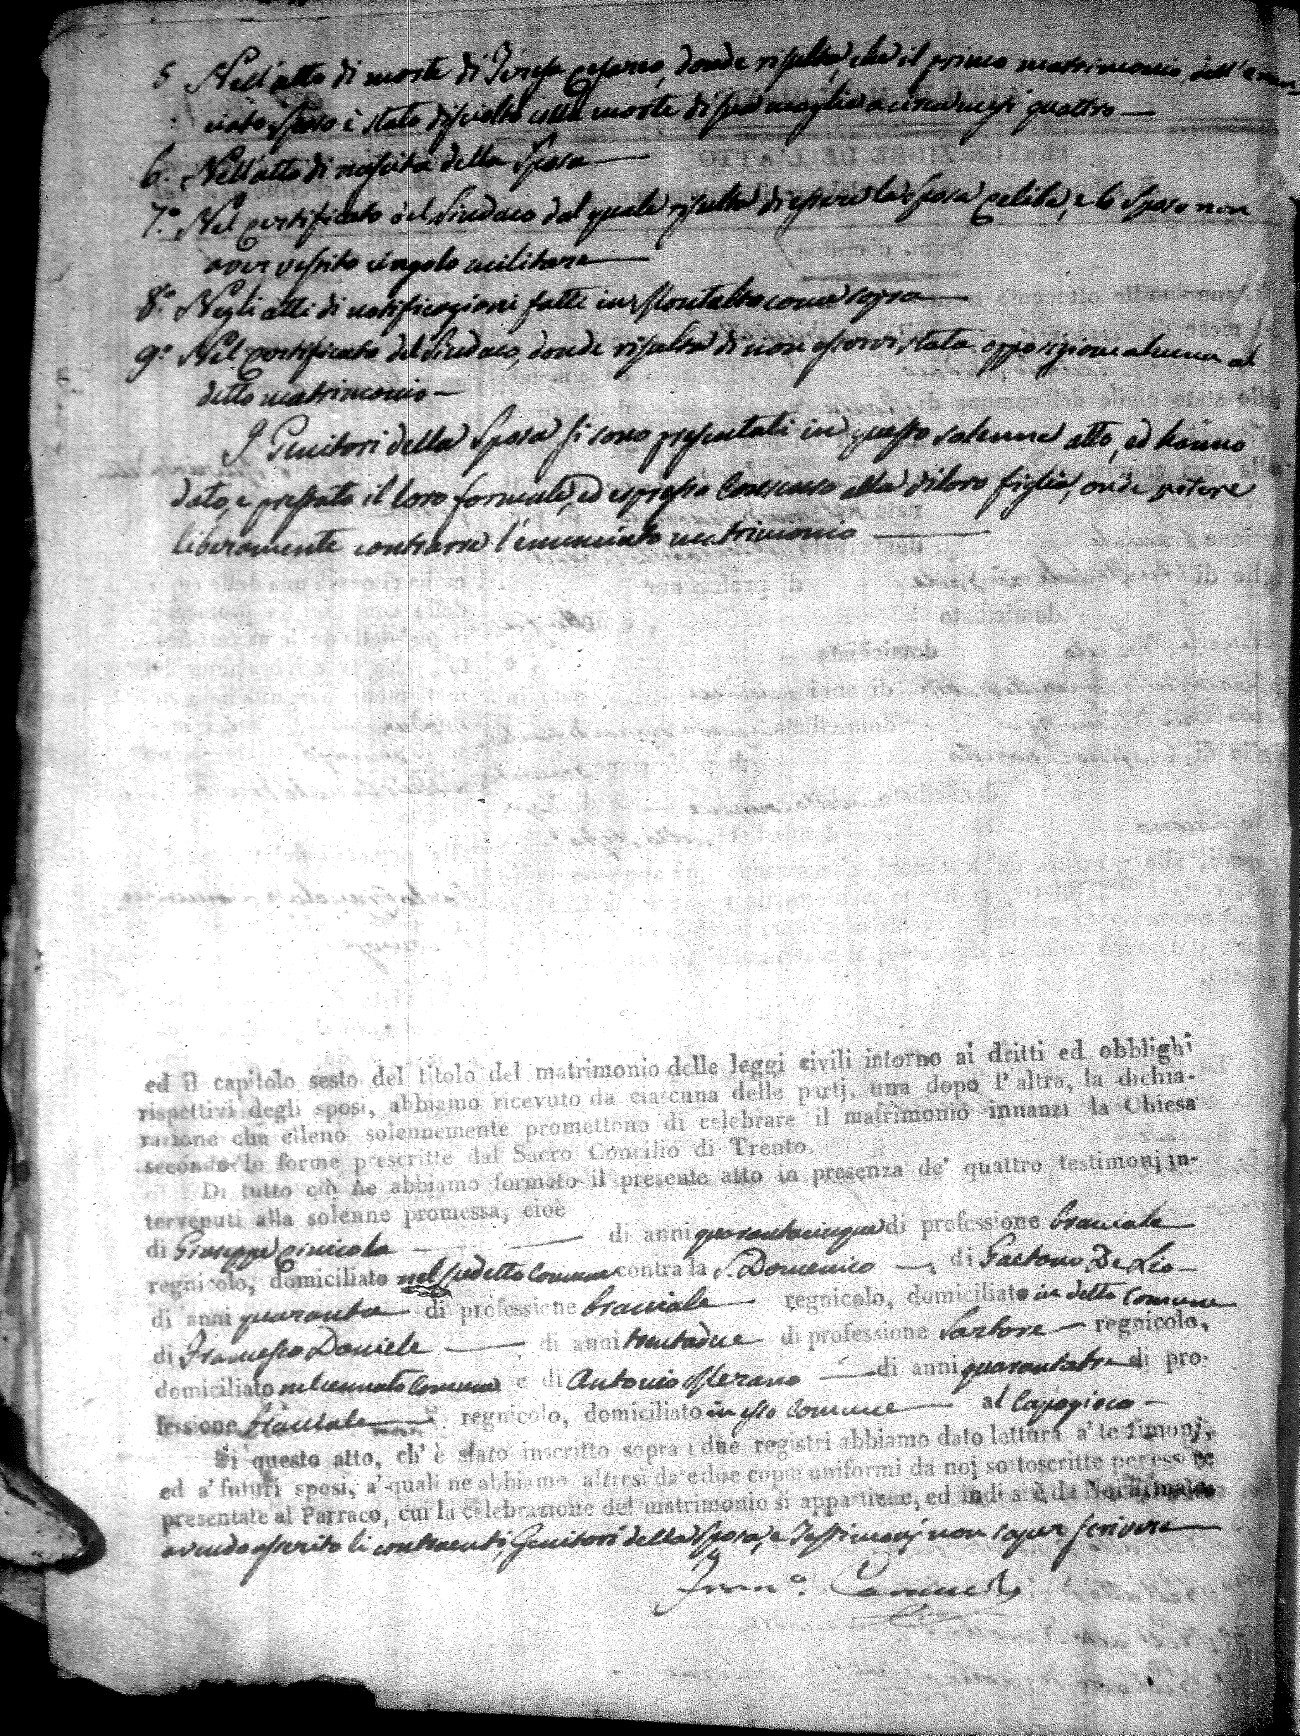 5 Nell'atto di morte di Teresa Cesareo, donde risulta, che il primo matrimonio dell'enun-
ciato Sposo è stato disciolto colla morte di sua moglie a circa mesi quattro —
6.º Nell'atto di nascita della Sposa —
7.º Nel certificato del Sindaco dal quale risulta di essere la Sposa celibe, e lo Sposo non
aver vestito cingolo militare —
8.º Negli atti di notificazioni fatti in Montalto come sopra —
9.º Nel certificato del Sindaco, donde risulta di non esservi stata opposizione alcuna al
detto matrimonio —
I Genitori della Sposa si sono presentati in questo solenne atto, ed hanno
dato, e prestato il loro formale, ed espresso Consenso alla di loro figlia, onde potere
liberamente contrarre l'enunciato matrimonio —
ed il capitolo sesto del titolo del matrimonio delle leggi civili intorno ai dritti ed obblighi
rispettivi degli sposi, abbiamo ricevuto da ciascuna delle parti, una dopo l'altra, la dichia-
razione che elleno solennemente promettono di celebrare il matrimonio innanzi la Chiesa
secondo le forme prescritte dal Sacro Concilio di Trento.
Di tutto ciò ne abbiamo formato il presente atto in presenza de' quattro testimonj in-
tervenuti alla solenne promessa, cioè
di Giuseppe — di anni quarantacinque di professione bracciale
regnicolo, domiciliato nel sudetto Comune contra la S. Domenico — di Gaetano De Leo —
di anni quaranta — di professione bracciale — regnicolo, domiciliato in detto Comune
di Francesco Daniele — di anni trentadue di professione Sartore — regnicolo,
domiciliato nel cennato Comune e di Antonio — di anni quarantatre di pro-
fessione bracciale — regnicolo, domiciliato in esso Comune — al
Di questo atto, ch' è stato inscritto sopra i due registri abbiamo dato lettura a' testimonj,
ed a' futuri sposi, a' quali ne abbiamo altresì date due copie uniformi da noi sottoscritte per essere
presentate al Parroco, cui la celebrazione del matrimonio si appartiene, ed indi si è da Noi firmato
avendo asserito li contraenti, Genitori della Sposa, e Testimonj non saper scrivere —